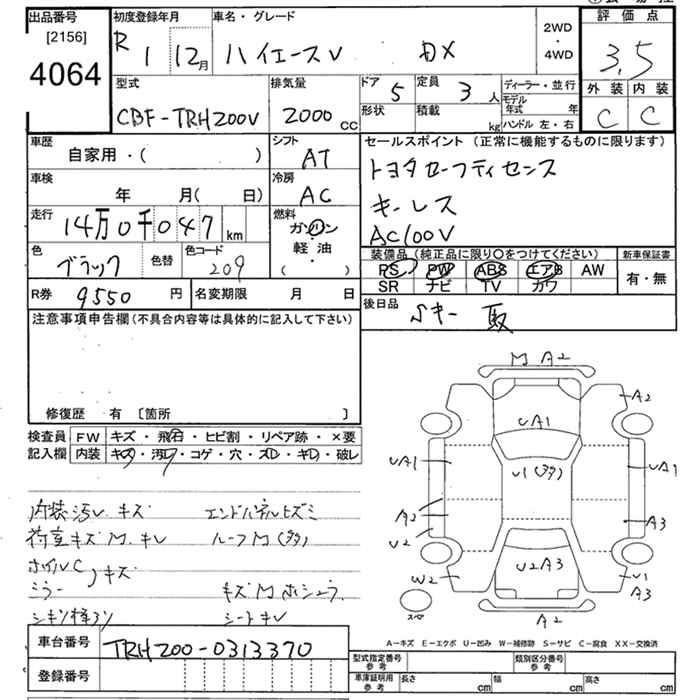 出品番号
[2156]
4064
初度登録年月
R 1 12月
車名・グレード
ハイエースV DX
2WD
・
4WD
評価点
3.5
外装 内装
C C
型式
CBF-TRH200V
排気量
2000cc
ドア 5
定員 3人
形状
積載 kg
ディーラー・並行
モデル年式 年
ハンドル 左・右
車歴
自家用・( )
シフト
AT
車検
年 月( 日)
冷房
AC
走行
14万0千047km
燃料
ガソリン
軽・油
( )
色
ブラック
色替
色コード
209
R券 9550円
名変期限 月 日
セールスポイント (正常に機能するものに限ります)
トヨタセーフティセンス
キーレス
AC100V
装備品 (純正品に限り〇をつけてください)
PS PW ABS エアB AW
SR ナビ TV カワ
新車保証書
有・無
後日品
Sキー 取
注意事項申告欄 (不具合内容等は具体的に記入して下さい)
修復歴 有 [箇所 ]
検査員記入欄
FW キズ・飛石・ヒビ割・リペア跡・×要
内装 キズ・汚レ・コゲ・穴・ズレ・キレ・破レ
内装汚レ キズ エンドパネルヒズミ
荷室キズ M キレ ルーフM(多)
ホイルC
ミラー キズ
キズ M
シートキレ
M A2
A2
UA1
UA1
U1(多)
UA1
A2
U2
A3
U2A3
W2
U1
A3
スペ
A2
A-キズ E-エクボ U-凹み W-補修跡 S-サビ C-腐食 XX-交換済
車台番号
TRH200-0313370
登録番号
型式指定番号 参考
類別区分番号 参考
車庫証明用 参考
長さ cm
幅 cm
高さ cm